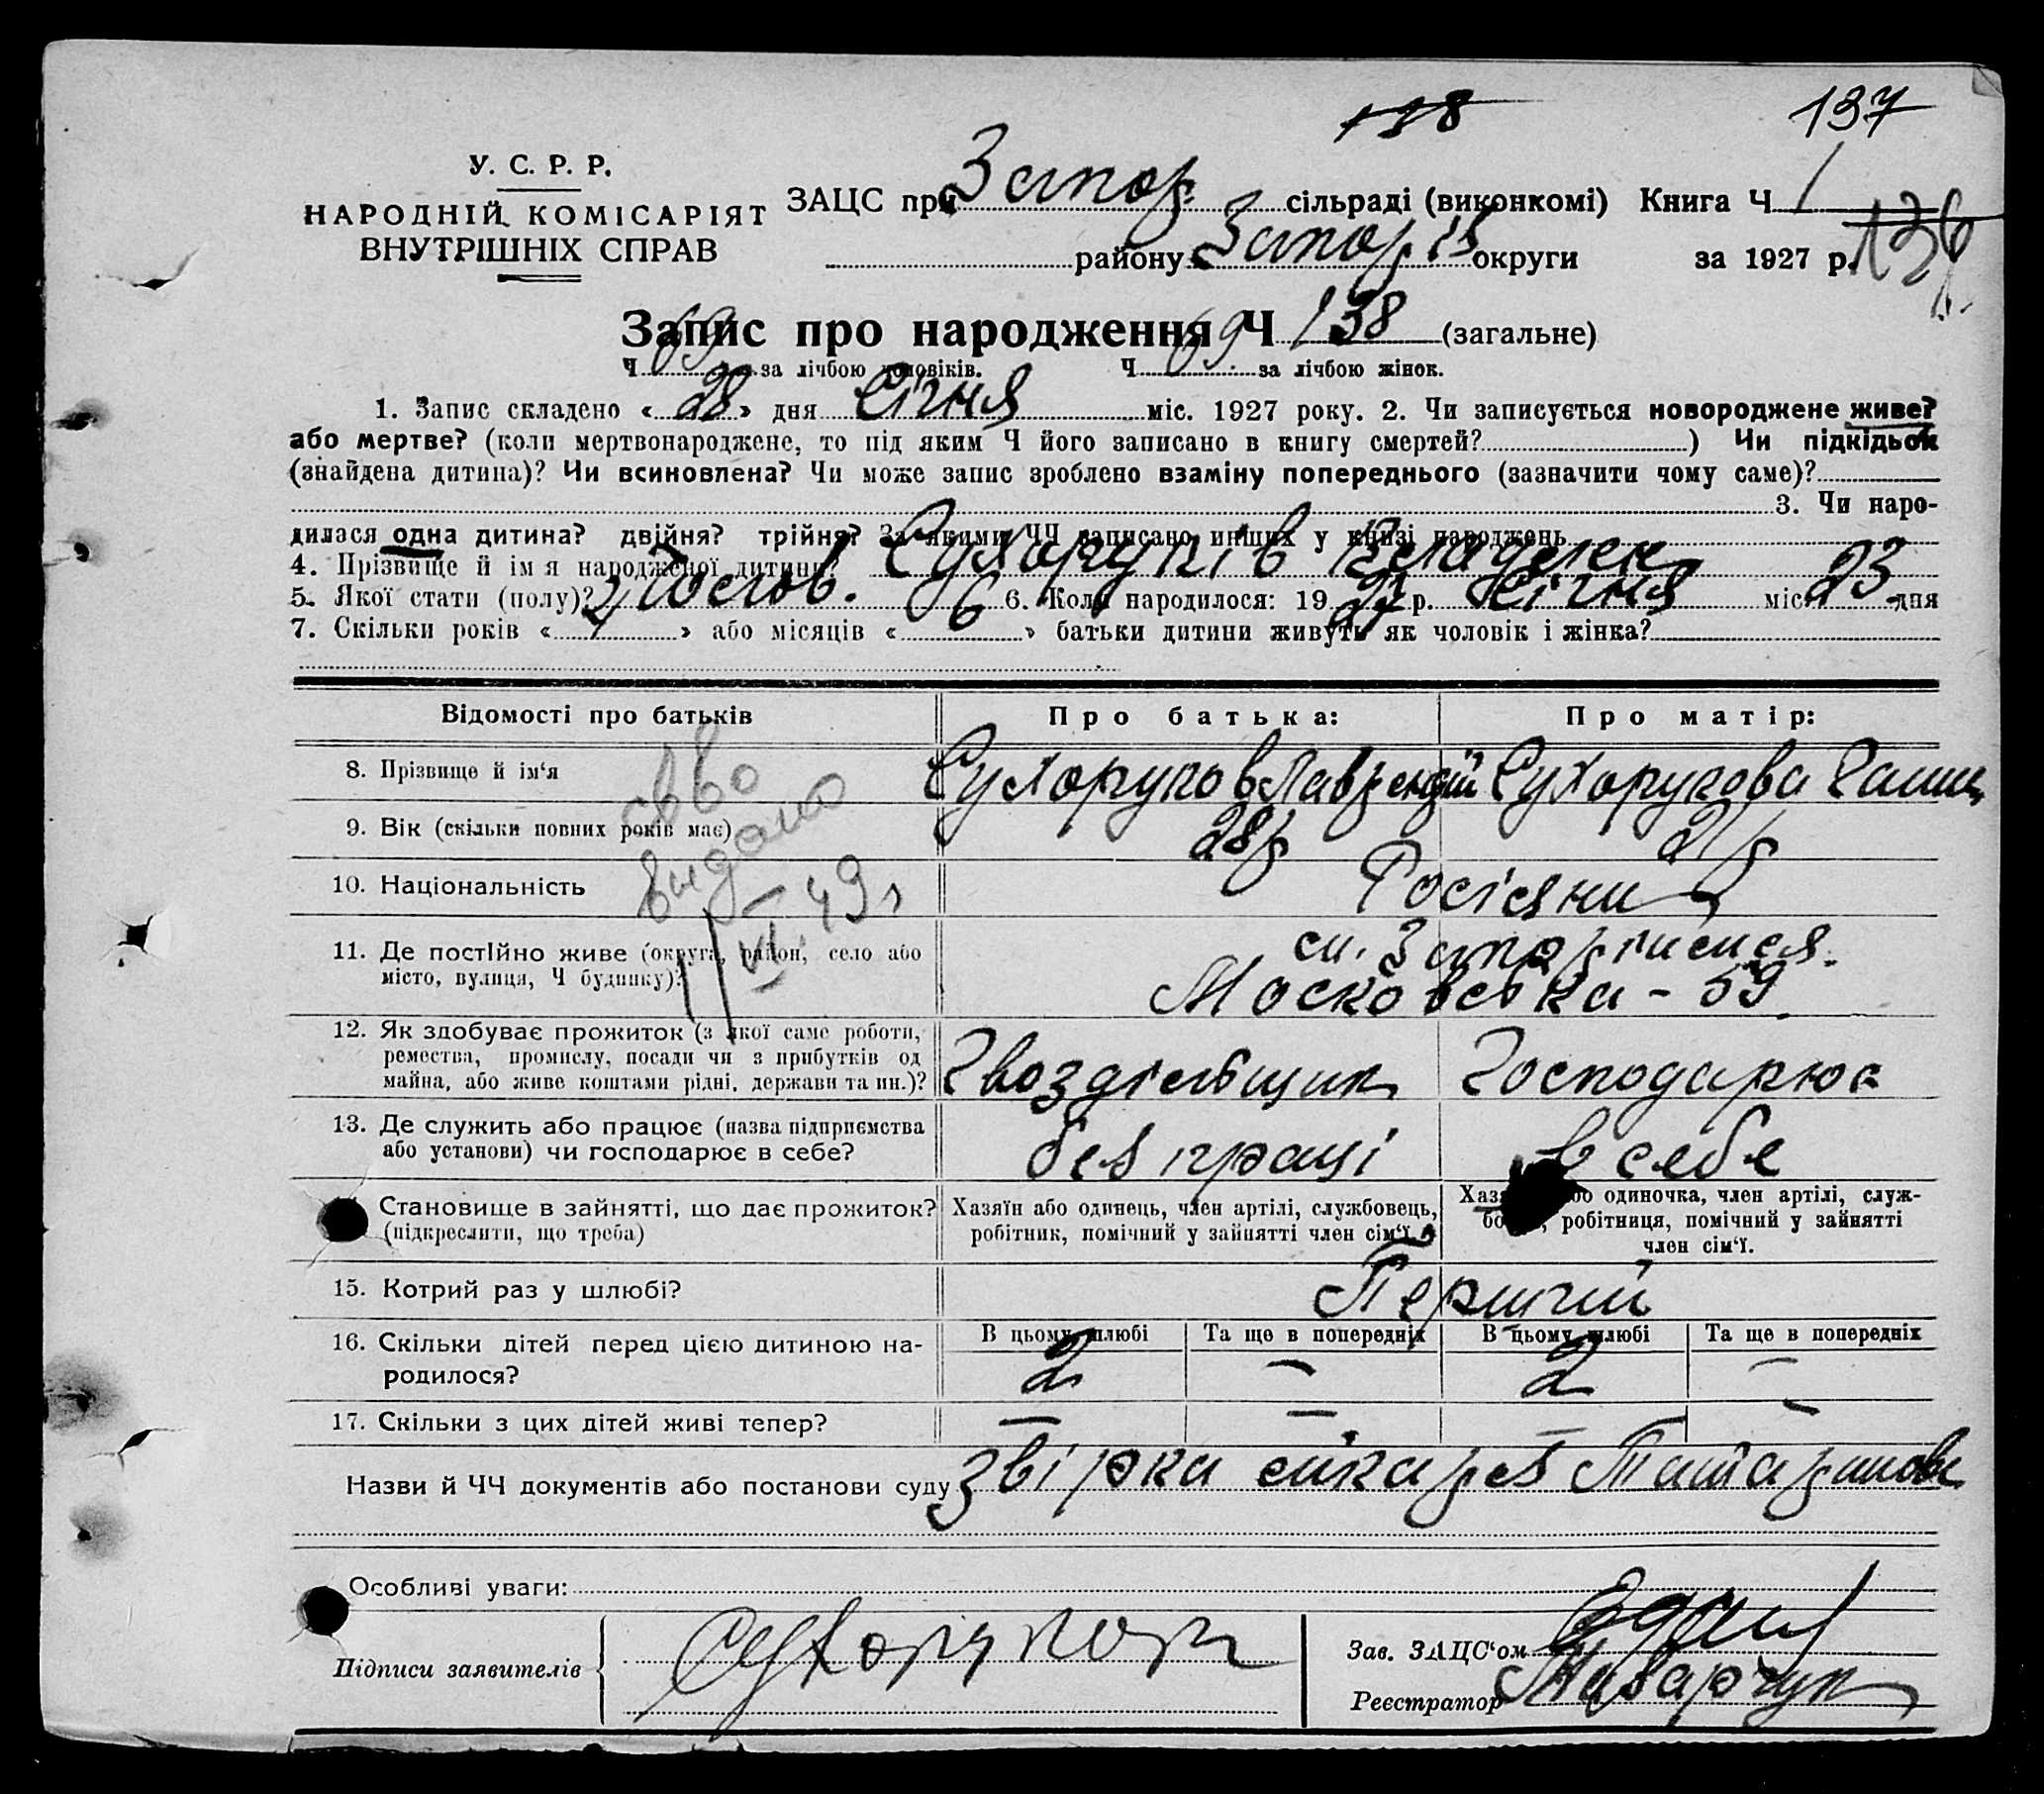 138
137
У. С. Р. Р.
НАРОДНІЙ КОМІСАРІЯТ
ВНУТРІШНІХ СПРАВ
ЗАЦС при Запор. сільраді (виконкомі) Книга Ч 1
району Запоріз округи за 1927 р.
Запис про народження Ч 138 (загальне)
Ч 69 за лічбою чоловіків. Ч 69 за лічбою жінок.
1. Запис складено « 28 » дня Січня міс. 1927 року. 2. Чи записується новороджене живе?
або мертве? (коли мертвонароджене, то під яким Ч його записано в книгу смертей? ) Чи підкідьок
(знайдена дитина)? Чи всиновлена? Чи може запис зроблено взаміну попереднього (зазначити чому саме)?
3. Чи наро-
дилася одна дитина? двійня? трійня? За якими ЧЧ записано инших у книзі народжень
4. Прізвище й ім я народженої дитини? Сухоруків
5. Якої стати (полу)? Чолов. 6. Коли народилося: 19 27 р. Січня міс. 23 дня
7. Скільки років « » або місяців « 6 » батьки дитини живуть як чоловік і жінка?
Відомості про батьків Про батька: Про матір:
8. Прізвище й ім‘я Сухоруков Лаврентій Сухорукова
9. Вік (скільки повних років має) 28р 21р
10. Національність Росіяни
11. Де постійно живе (округа, район, село або
місто, вулиця, Ч будинку)? м. Запоріжжя.
Московська - 59.
видано
VI 49 г
12. Як здобуває прожиток (з якої саме роботи,
ремества, промислу, посади чи з прибутків од
майна, або живе коштами рідні, держави та ин.)? Гвоздільщик Господарює
13. Де служить або працює (назва підприємства
або установи) чи господарює в себе? без праці в себе
Становище в зайнятті, що дає прожиток?
(підкреслити, що треба)
Хазяїн або одинець, член артілі, службовець,
робітник, помічний у зайнятті член сім‘ї.
або одиночка, член артілі, служ-
робітниця, помічний у зайнятті
член сім‘ї.
15. Котрий раз у шлюбі? Перший
16. Скільки дітей перед цією дитиною на-
родилося?
В цьому шлюбі Та ще в попередніх В цьому шлюбі Та ще в попередніх
2 – 2 –
17. Скільки з цих дітей живі тепер? – – – –
Назви й ЧЧ документів або постанови суду
Особливі уваги:
Підписи заявителів
Зав. ЗАЦС‘ом
Реєстратор